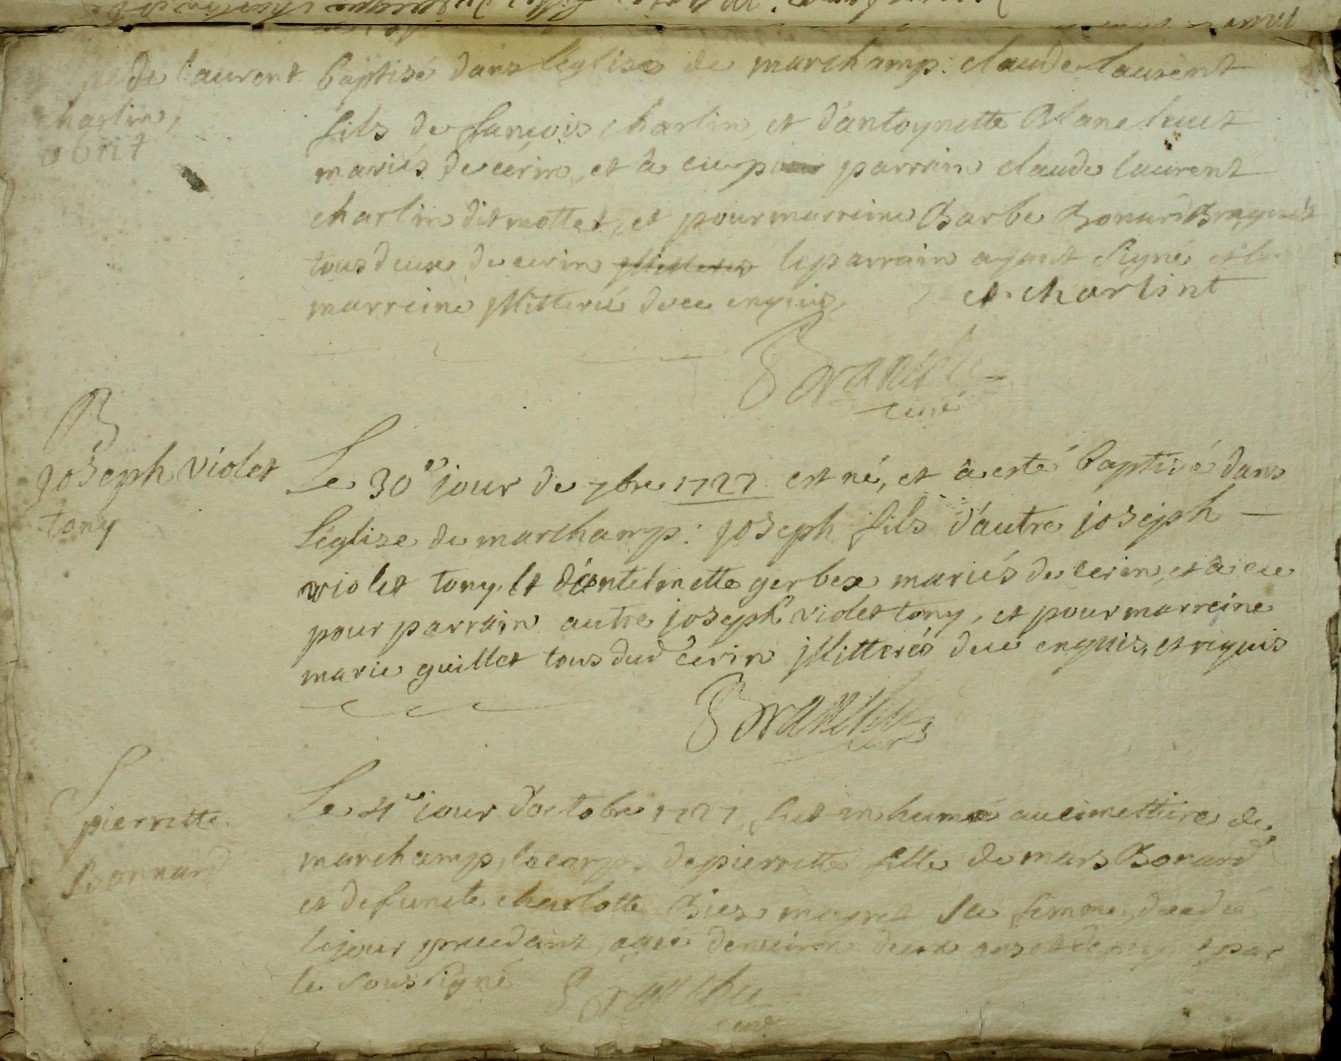 de laurent
charlin
obiit
baptisé dans leglise de marchamp: claude laurent
fils de francois charlin et d'antoynette
mariés de cerin, et à eu pour parrain claude laurent
charlin dit mottet, et pour marreine Barbe Bonard
tous deux de cerin le parrain ayant signé et la
marreine illitterée de ce enquis
cl. charlint
Branche
curé
B
joseph violet
tony
Le 30e jour de 7bre 1727 est né, et à esté baptisé dans
leglise de marchamp: joseph fils d'autre joseph
violet tony et d'antelmette gerbex mariés de cerin, et à eu
pour parrain autre joseph violet tony, et pour marreine
marie guillet tous dud cerin illitterés de ce enquis, et requis
Branche
curé
S
pierrette
Bonnard
Le 4e jour d'octobre 1727 fut inhumé au cimettiere de
marchamp, le corps de pierrette fille de mars Bonard
et defuncte charlotte sa femme, decedée
le jour precedant, agée denviron deux ans et demy par
le soussigné
Branche
curé